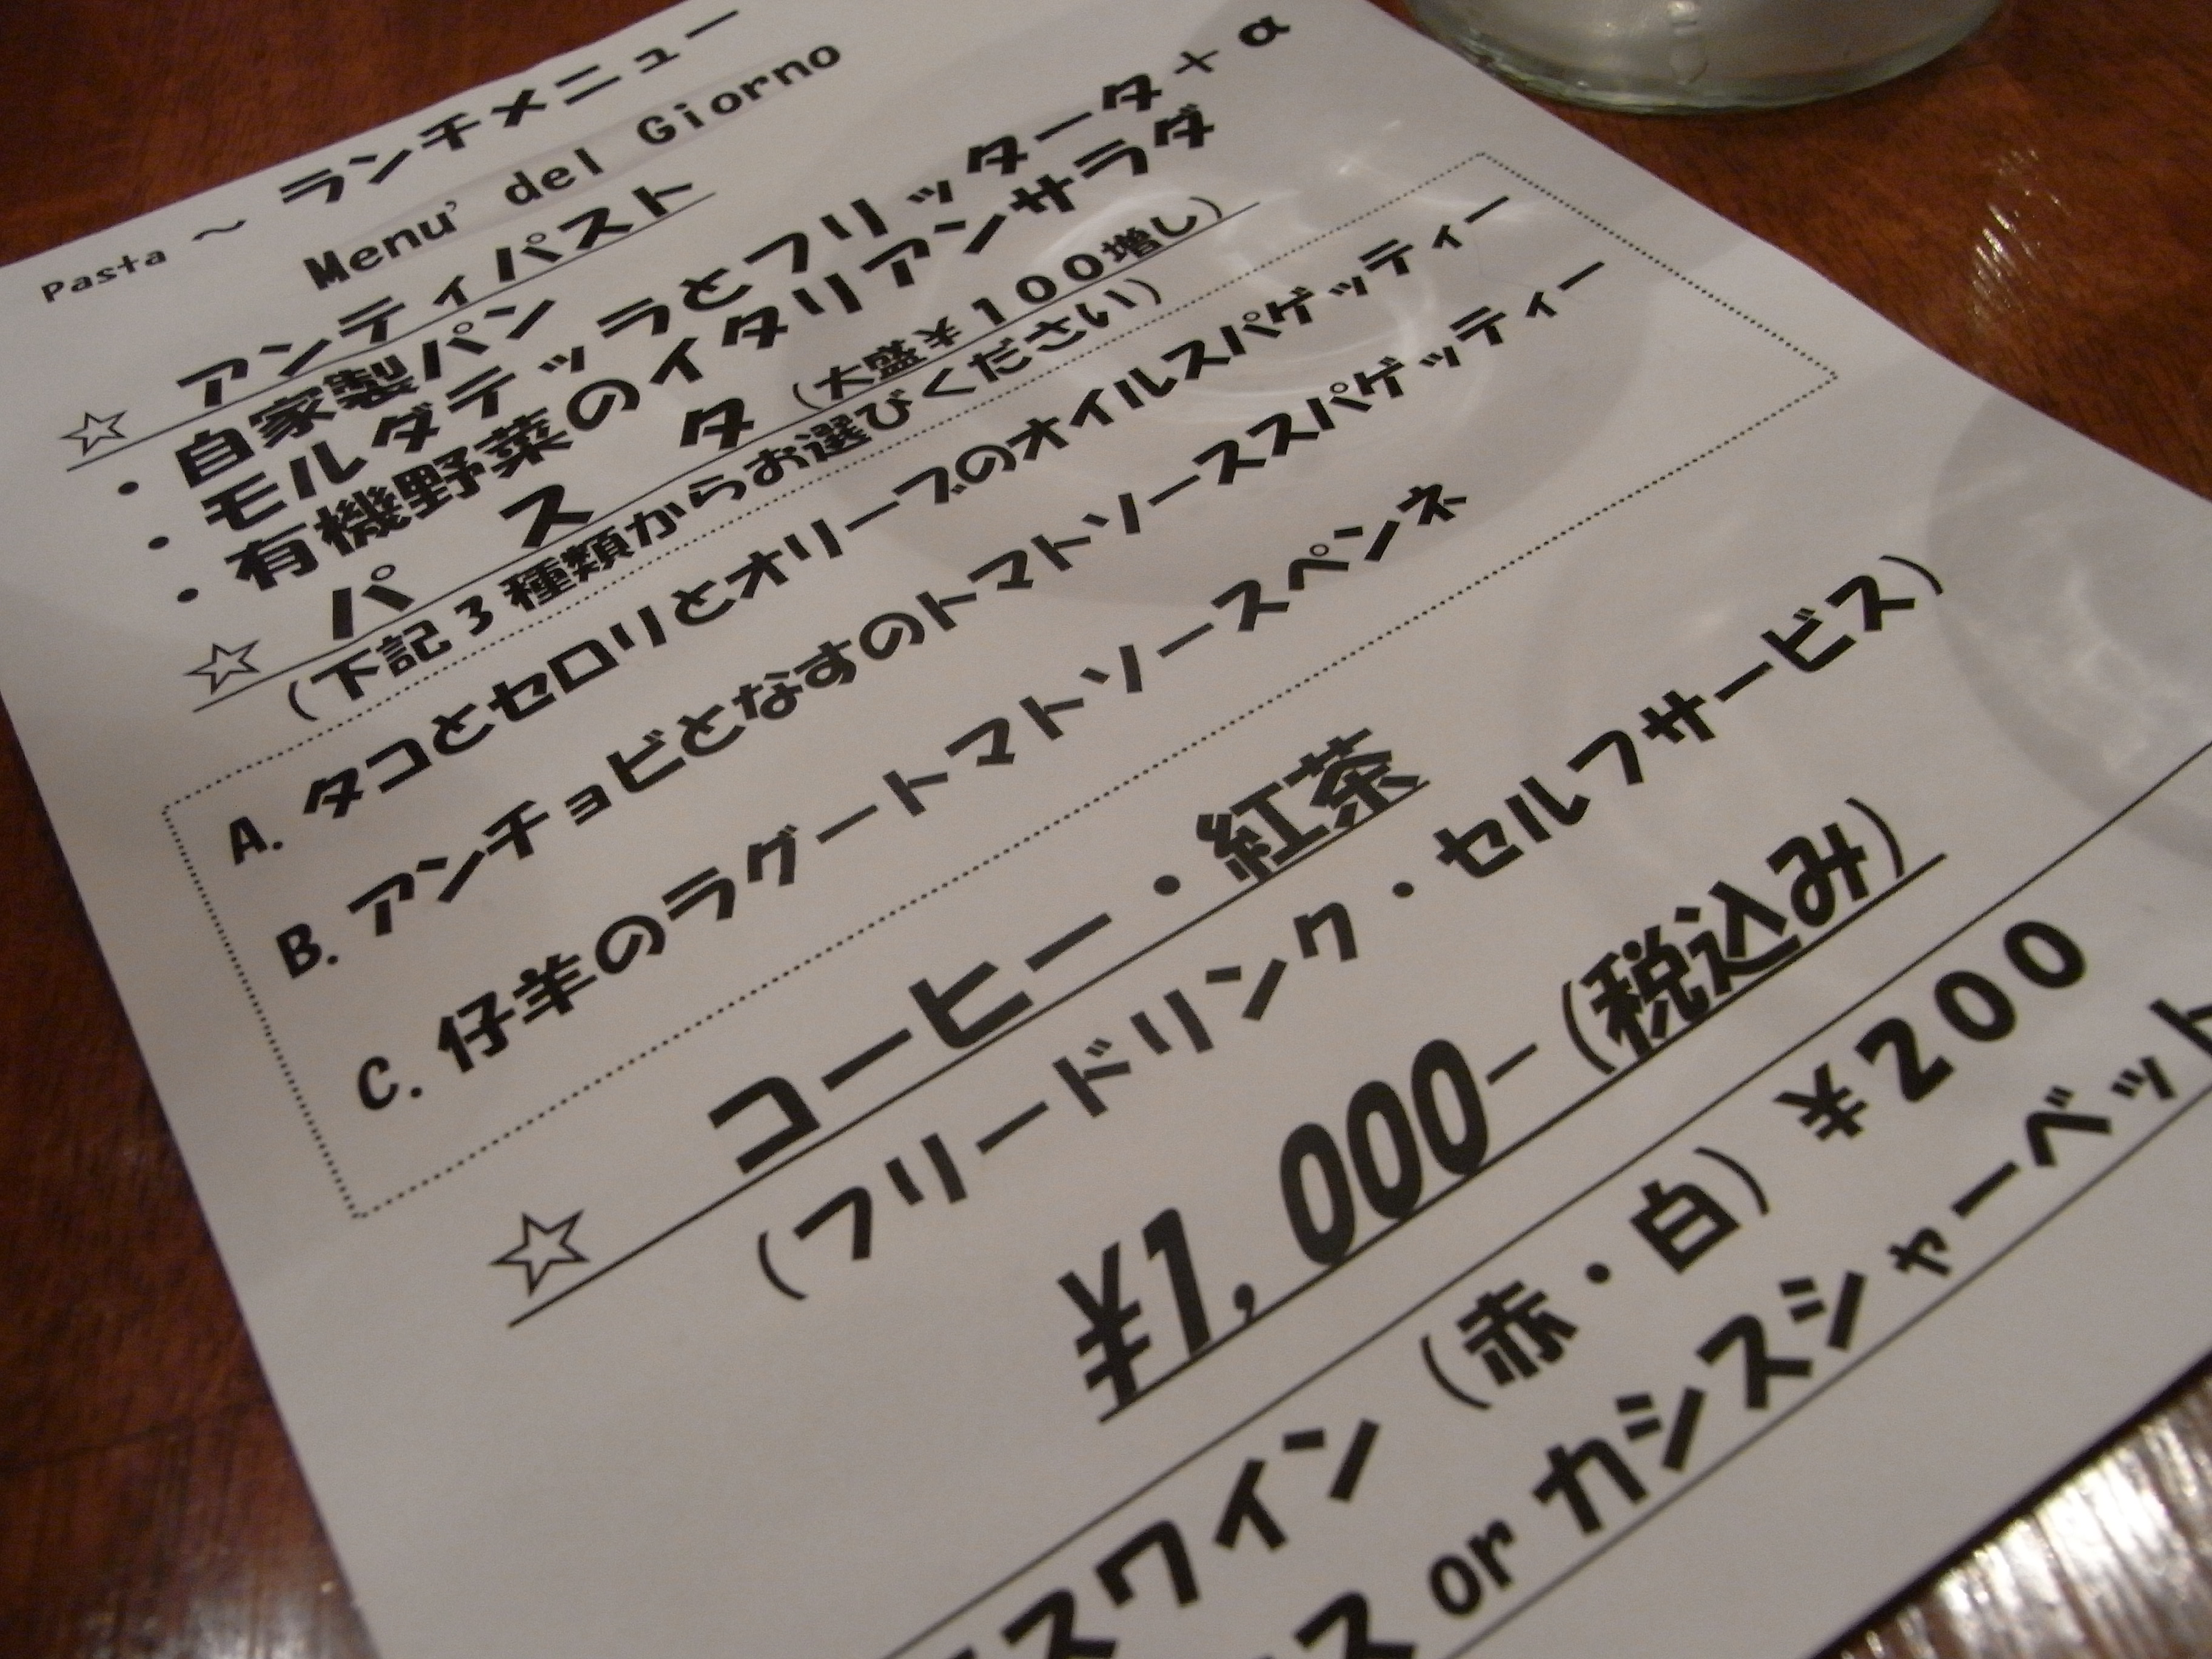 Pasta ～ ランチメニュー
Menu' del Giorno
☆ アンティパスト
・自家製パン
・モルタデッラとフリッタータ+α
・有機野菜のイタリアンサラダ
☆ パ ス タ (大盛¥100増し)
(下記3種類からお選びください)
A. タコとセロリとオリーブのオイルスパゲッティー
B. アンチョビとなすのトマトソーススパゲッティー
C. 仔羊のラグートマトソースペンネ
☆ コーヒー・紅茶
(フリードリンク・セルフサービス)
¥1,000-(税込み)
スワイン (赤・白) ¥200
ス or カシスシャーベット